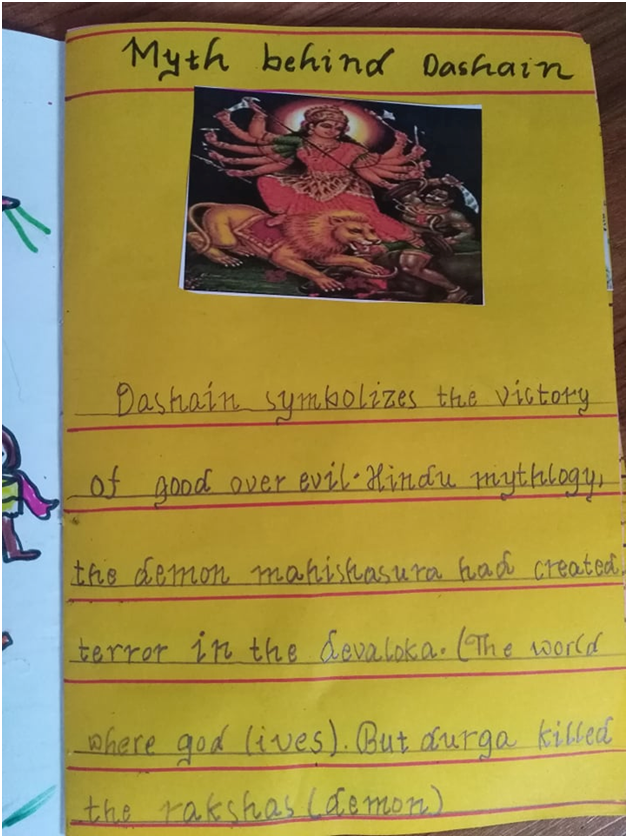 Myth behind Dashain
Dashain symbolizes the victory
of good over evil. Hindu mythlogy,
the demon mahishasura had created
terror in the devaloka. (The world
where god lives). But durga killed
the rakshas (demon)